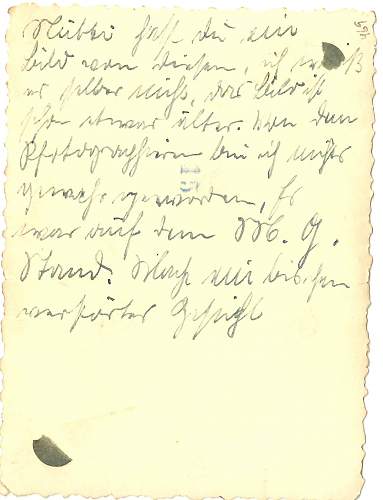 hast du ein
Bild von diesem, ich weiß
es selber nicht, das Bild ist
schon etwas älter. Von dem
Photographieren bin ich nichts
gewahr geworden, Es
war auf dem M. G.
Stand. Mach ein bis.chen
verstörtes Gesicht
15